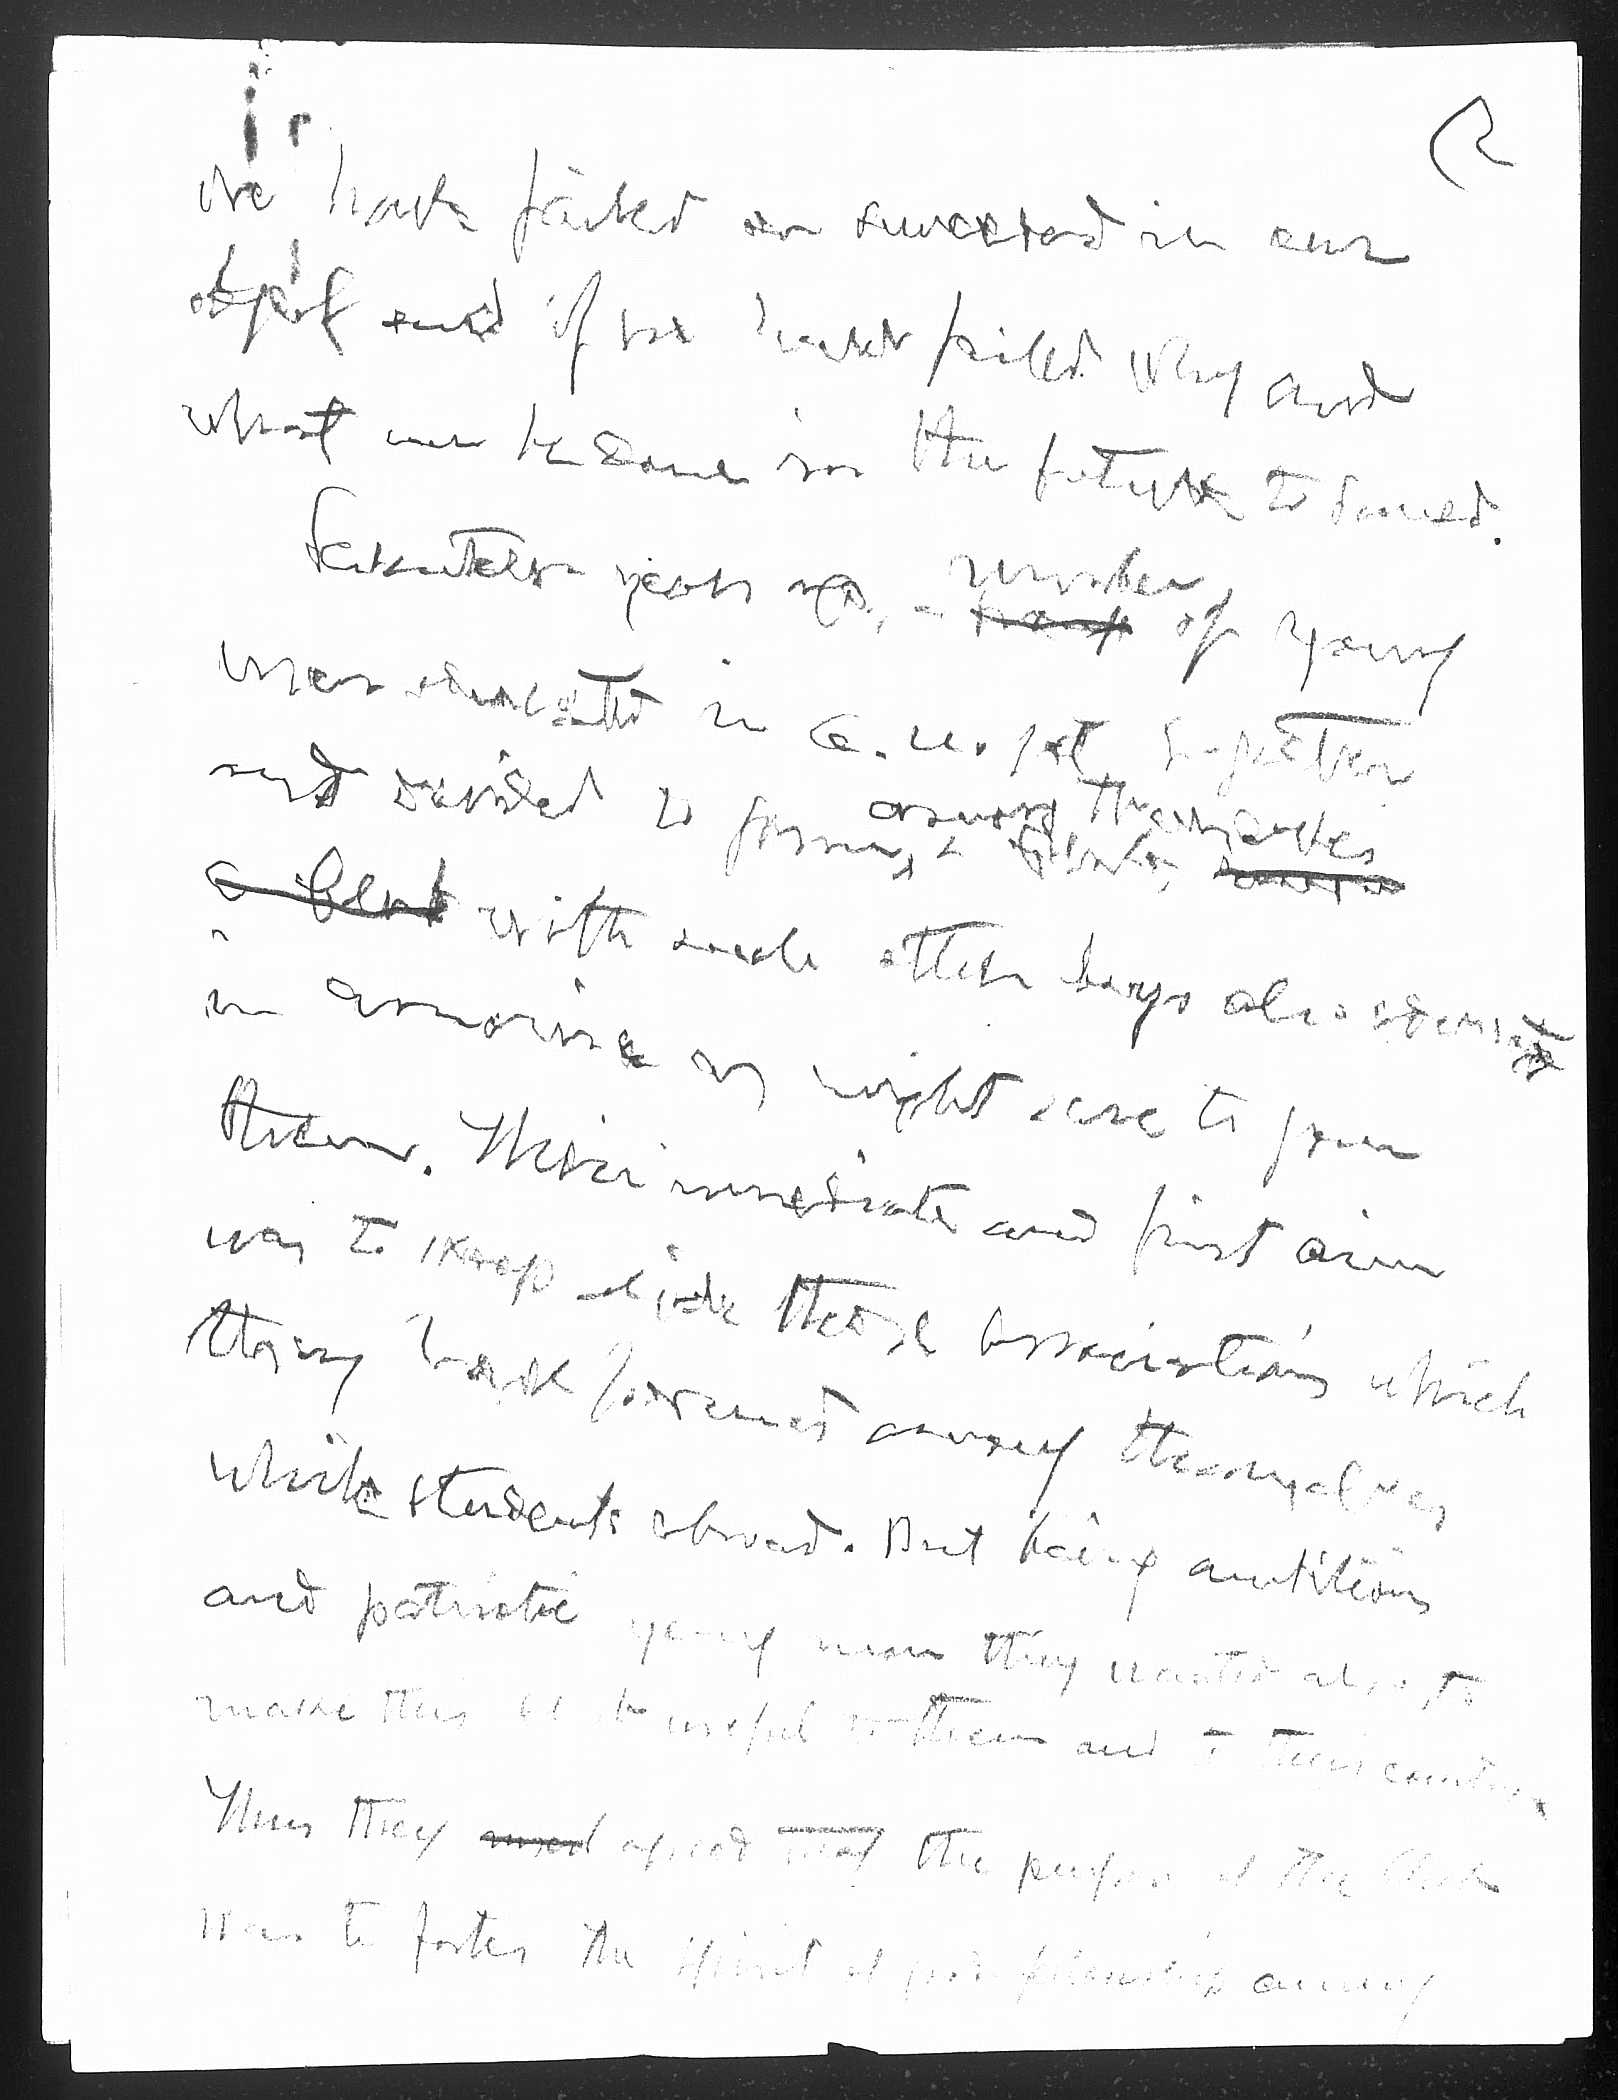 (2
we have failed or succeeded in our
object and if we have failed why and
what can be done in the future to succeed.
Seventeen years ago, a number of young
men educated in a. u. got together
and decided to form, a club, among themselves
a club with such other boys also educated
in america as might care to join
them. Their immediate and first aim
was to keep alive those associations which
they have formed among themselves
while students abroad. But being ambitious
and patriotic young men they wanted also to
make this club useful to them and to their country.
Thus they agreed that the purpose of the Club
was to foster the spirit of good fellowship among